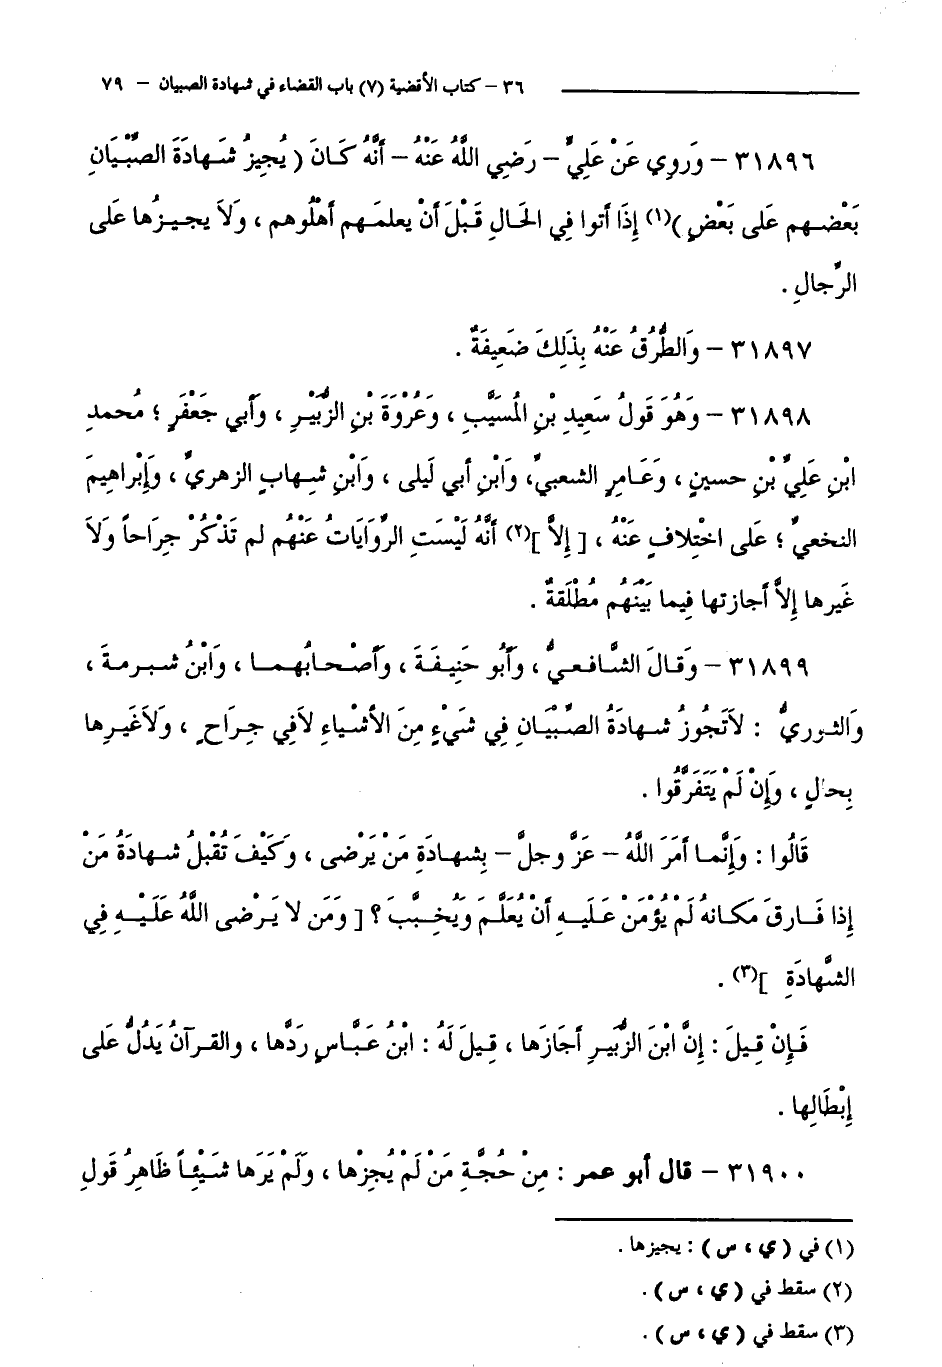 ٣٦ – كتاب الأقضية (٧) باب القضاء في شهادة الصبيان – ٧٩
٣١٨٩٦ – وَرَوِي عَنْ عَلِيٍّ – رَضِي اللَّهُ عَنْهُ – أَنَّهُ كَانَ ( يُجِيزُ شَهادَةَ الصِّبْيَانِ
بَعْضِهم عَلى بَعْضٍ )(١) إِذَا أتوا فِي الحَالِ قَبْلَ أَنْ يعلمَهم أهْلُوهم ، وَلاَ يجيزُها عَلى
الرِّجالِ .
٣١٨٩٧ – وَالطُّرُقُ عَنْهُ بِذَلِكَ ضَعِيفَةٌ .
٣١٨٩٨ – وَهُوَ قَولُ سَعِيدِ بْنِ المُسَيَّبِ ، وَعُرْوَةَ بْنِ الزُّبَيْرِ ، وَأَبي جَعْفَرٍ ؛ مُحمدِ
ابْنِ عَلِيِّ بْنِ حسينٍ ، وَعَامِرٍ الشعبيِّ، وَابْنِ أبي لَيلى ، وَابْنِ شِهابٍ الزهريِّ ، وَإِبْراهِيمَ
النخعيِّ ؛ عَلى اخْتِلافٍ عَنْهُ ، [ إِلاَّ ](٢) أَنَّهُ لَيْسَتِ الرِّوَايَاتُ عَنْهُم لم تَذْكُرْ جِرَاحاً وَلاَ
غَيرها إِلاَّ أجازتها فِيما بَيْنَهُم مُطْلَقَةً .
٣١٨٩٩ – وَقالَ الشَّافعيُّ ، وَأَبُو حَنِيفَةَ ، وَأَصْحابُهما ، وَابْنُ شبرمةَ ،
وَالثوريُّ : لاَتَجُوزُ شهادَةُ الصِّبْيَانِ فِي شَيْءٍ مِنَ الأَشْياءِ لاَفِي جِرَاحٍ ، وَلاَغَيرِها
بِحالٍ ، وَإِنْ لَمْ يَتَفَرَّقُوا .
قَالُوا : وَإِنَّما أَمَرَ اللَّهُ – عَزَّ وجلَّ – بِشهادَةِ مَنْ يَرْضى ، وَكَيْفَ تُقْبلُ شهادَةُ مَنْ
إِذا فَارقَ مَكانهُ لَمْ يُؤْمَنْ عَلَيهِ أَنْ يُعَلَّمَ وَيُخبَّبَ ؟ [ وَمَن لا يَرْضى اللَّهُ عَلَيْهِ فِي
الشَّهادَةِ ](٣) .
فَإِنْ قِيلَ : إِنَّ ابْنَ الزُّبَيرِ أجَازَها ، قِيلَ لَهُ : ابْنُ عَبَّاسٍ رَدَّها ، والقرآنُ يَدُلُّ عَلى
إِبْطَالِها .
٣١٩٠٠ – قال أبو عمر : مِنْ حُجَّةِ مَنْ لَمْ يُجِزْها ، وَلَمْ يَرَها شَيْئِاً ظَاهِرُ قَولِ
(١) في ( ي ، س ) : يجيزها .
(٢) سقط في ( ي ، س ) .
(٣) سقط في ( ي ، س ) .